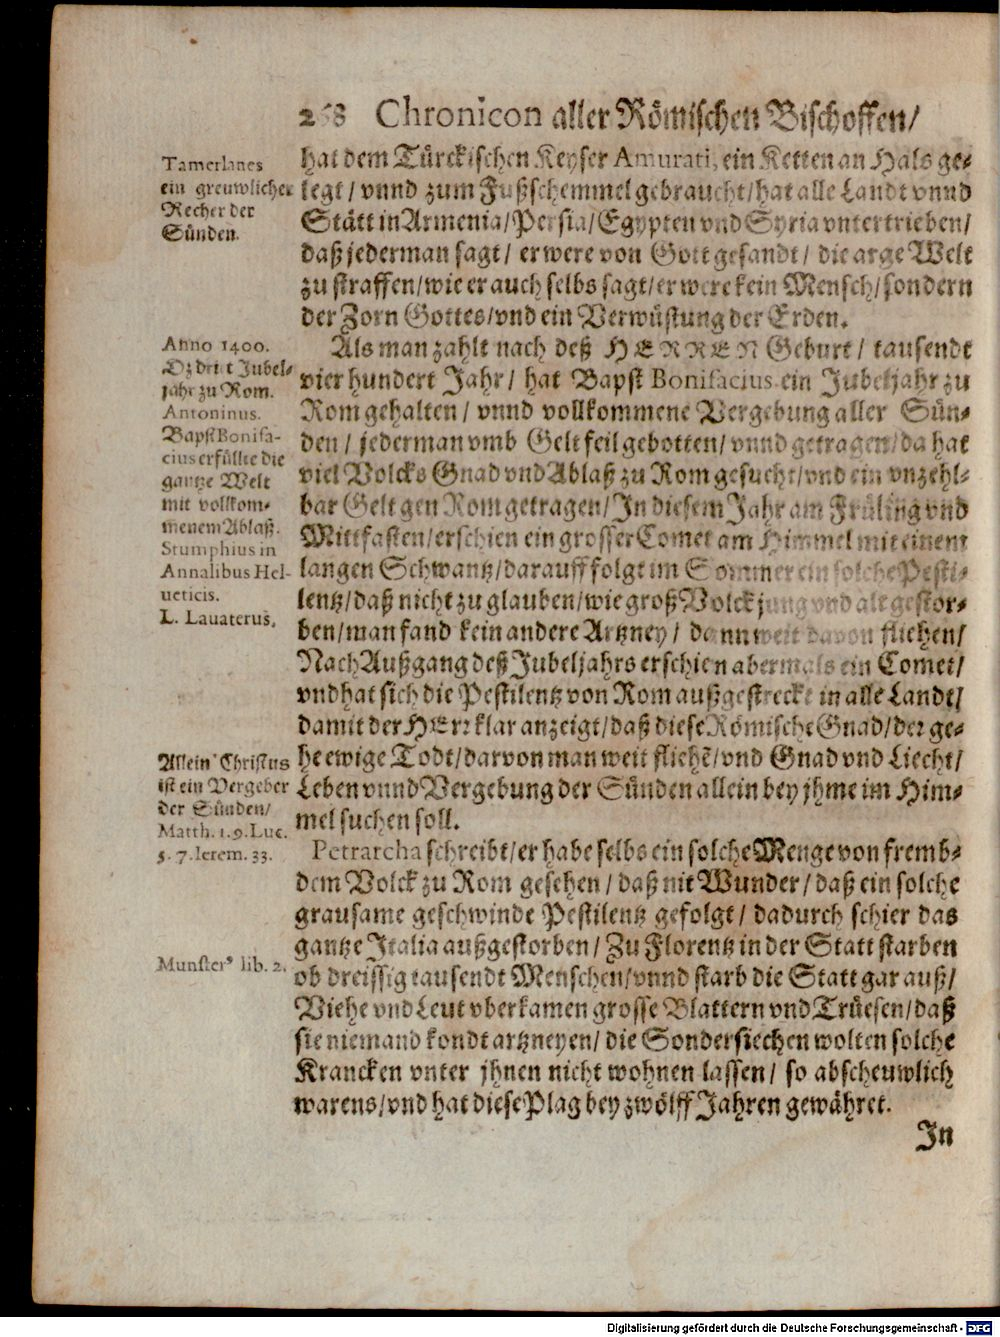 268 Chronicon aller Römischen Bischoffen/
Tamerlanes
ein greuwlicher
Recher der
Sünden.
hat dem Türckischen Keyser Amurati, ein Ketten an Hals ge-
legt/ vnnd zum Fußschemmel gebraucht/ hat alle Landt vnnd
Stätt in Armenia/ Persia/ Egypten vnd Syria vntertrieben/
daß jederman sagt/ er were von Gott gesandt/ die arge Welt
zu straffen/ wie er auch selbs sagt/ er were kein Mensch/ sondern
der Zorn Gottes/ vnd ein Verwüstung der Erden.
Anno 1400.
Dz dritt Jubel-
jahr zu Rom.
Antoninus.
Bapst Bonifa-
cius erfüllte die
gantze Welt
mit vollkom-
menem Ablaß.
Stumphius in
Annalibus Hel-
ueticis.
L. Lauaterus.
Als man zahlt nach deß HERREN Geburt/ tausendt
vier hundert Jahr/ hat Bapst Bonifacius ein Jubeljahr zu
Rom gehalten/ vnnd vollkommene Vergebung aller Sün-
den/ jederman vmb Gelt feil gebotten/ vnnd getragen/ da hat
viel Volcks Gnad vnd Ablaß zu Rom gesucht/ vnd ein vnzehl-
bar Gelt gen Rom getragen/ In diesem Jahr am Früling vnd
Mittfasten/ erschien ein grosser Comet am Himmel mit einem
langen Schwantz/ darauff folgt im Sommer ein solche Pesti-
lentz/ daß nicht zu glauben/ wie groß Volck jung vnd alt gestor-
ben/ man fand kein andere Artzney/ dann weit davon fliehen/
Nach Außgang deß Jubeljahrs erschien abermals ein Comet/
vnd hat sich die Pestilentz von Rom außgestreckt in alle Landt/
damit der HErr klar anzeigt/ daß diese Römische Gnad/ der ge-
he ewige Todt/ darvon man weit fliehē/ vnd Gnad vnd Liecht/
Leben vnnd Vergebung der Sünden allein bey jhme im Him-
mel suchen soll.
Allein Christus
ist ein Vergeber
der Sünden/
Matth. 1. 9. Luc.
5. 7. Ierem. 33.
Petrarcha schreibt/ er habe selbs ein solche Menge von fremb-
dem Volck zu Rom gesehen/ daß nit Wunder/ daß ein solche
grausame geschwinde Pestilentz gefolgt/ dadurch schier das
gantze Italia außgestorben/ Zu Florentz in der Statt starben
ob dreissig tausendt Menschen/ vnnd starb die Statt gar auß/
Viehe vnd Leut vberkamen grosse Blattern vnd Trüesen/ daß
sie niemand kondt artzneyen/ die Sondersiechen wolten solche
Krancken vnter jhnen nicht wohnen lassen/ so abscheuwlich
warens/ vnd hat diese Plag bey zwölff Jahren gewähret.
Munster⁹ lib. 2.
In
Digitalisierung gefördert durch die Deutsche Forschungsgemeinschaft - DFG